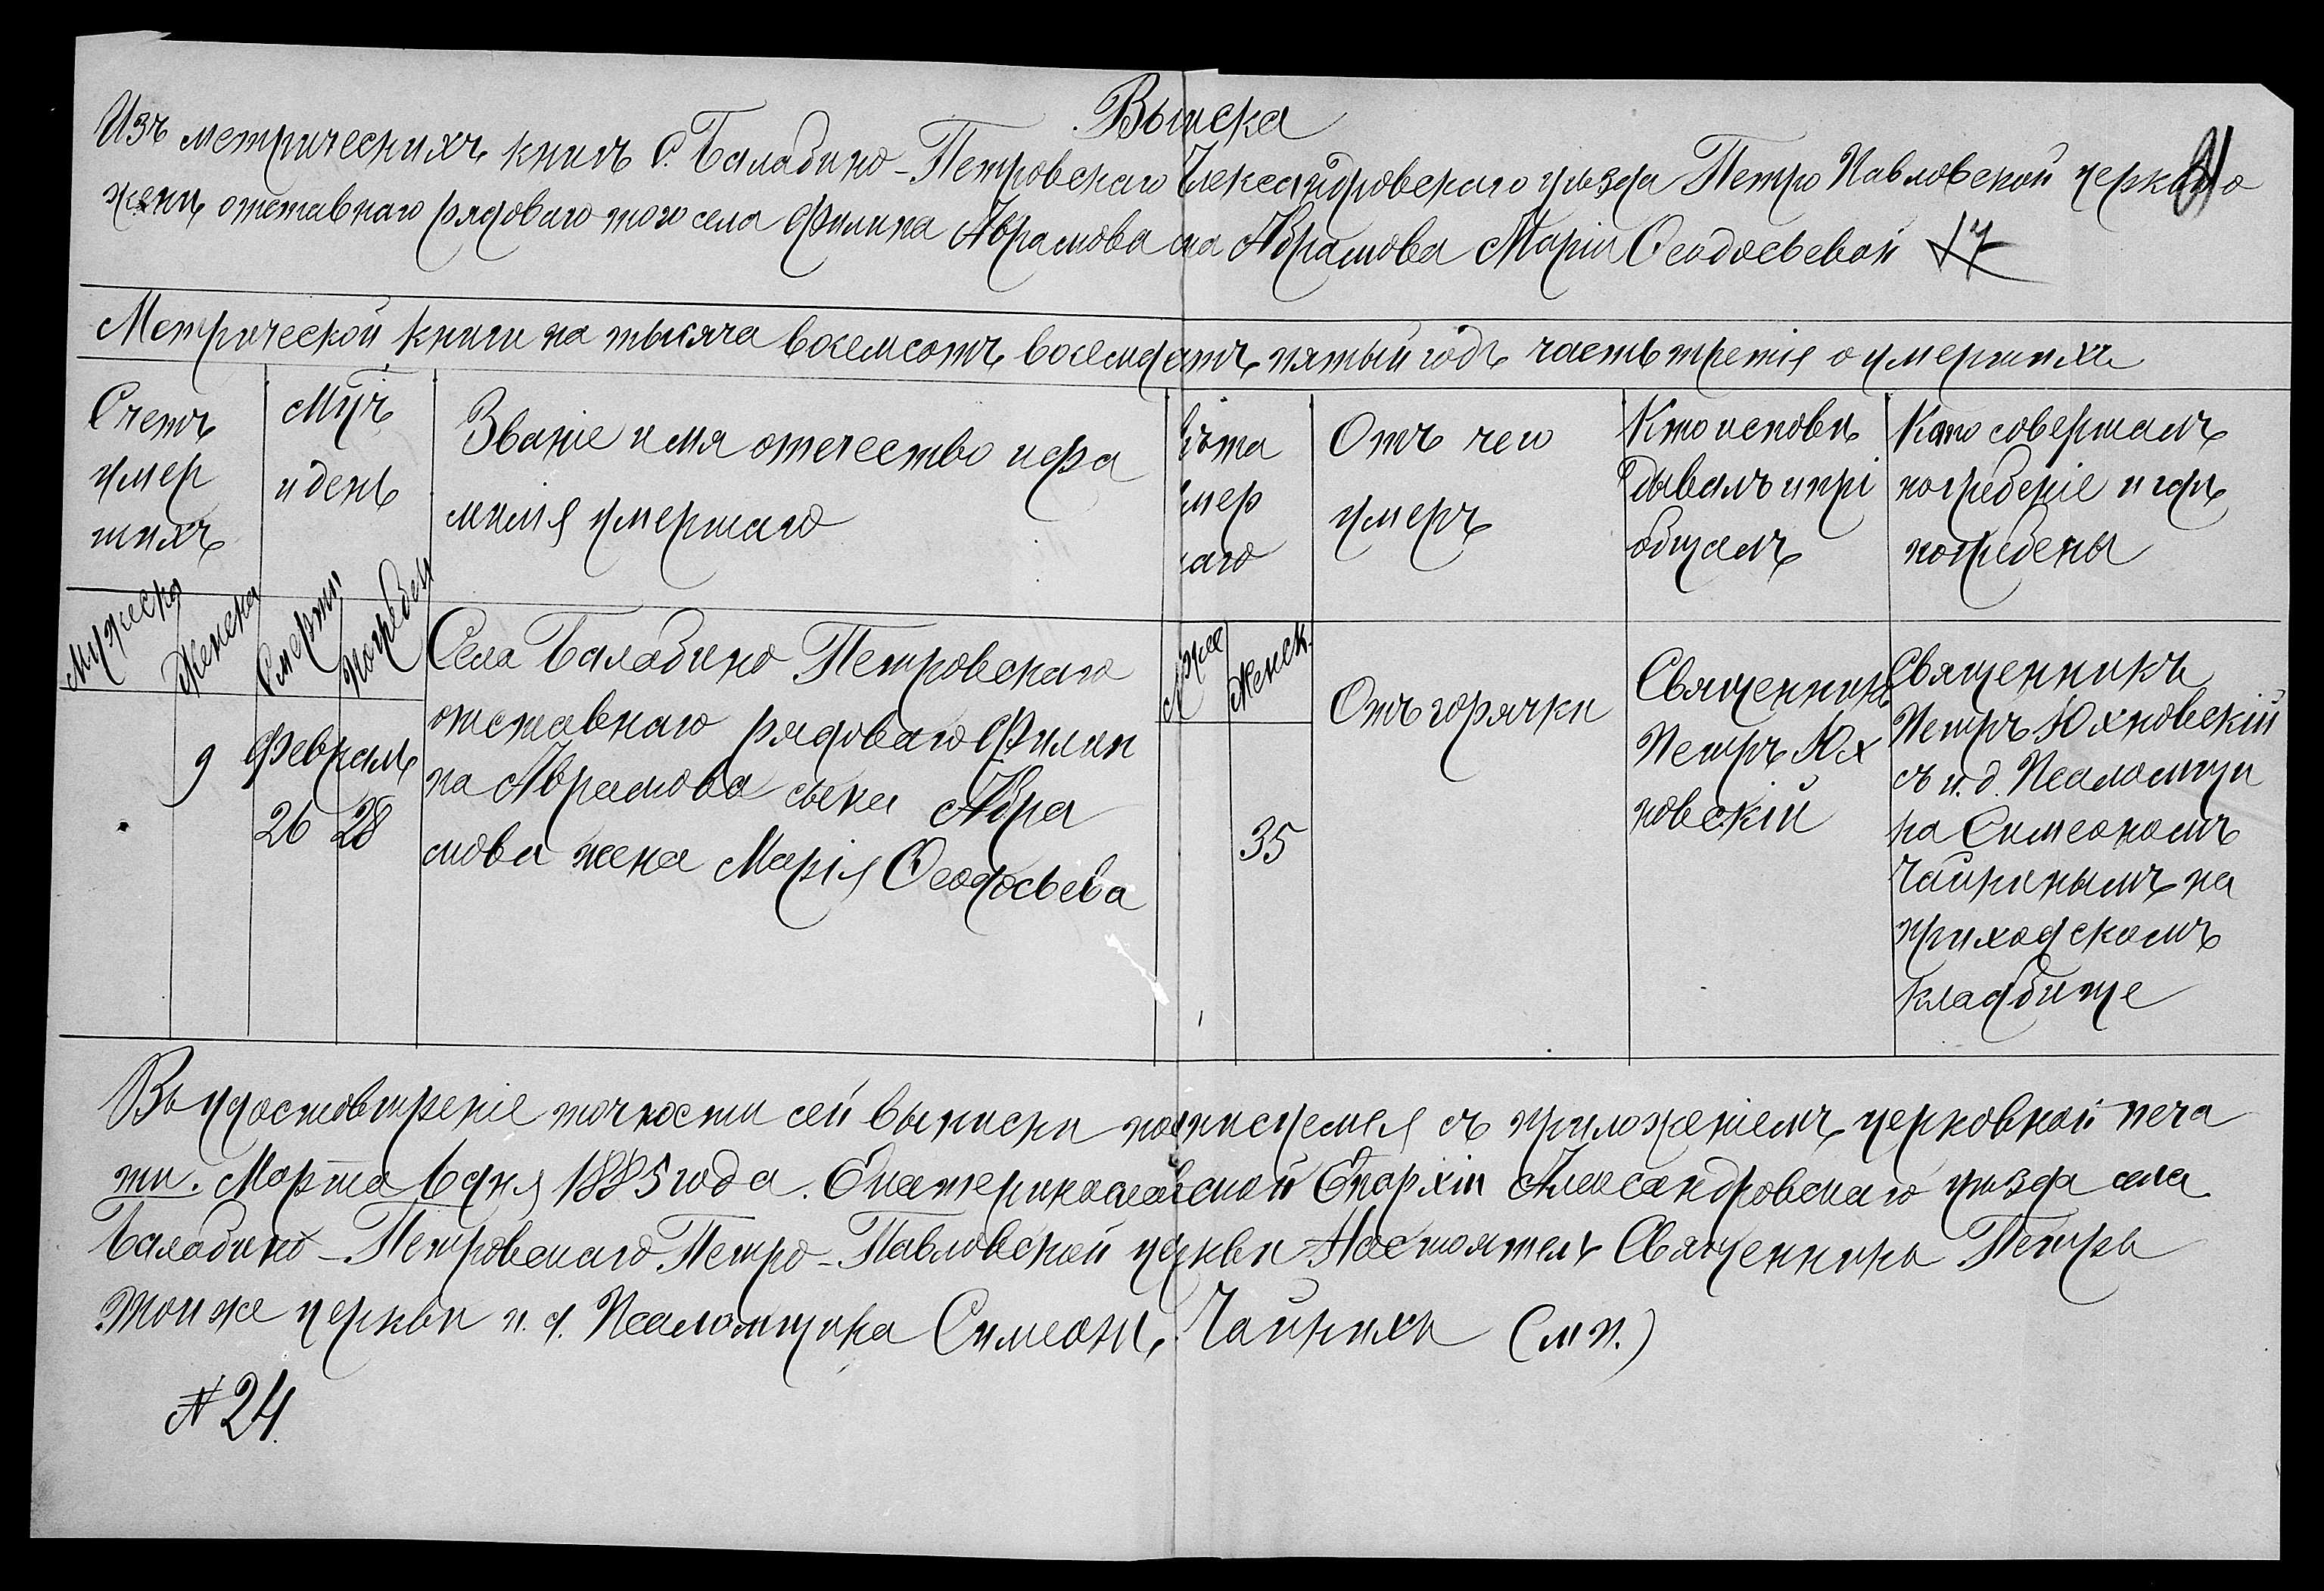 Выписка
Изъ метрическихъ книгъ С. Баладино-Петровскаго Александровскаго уѣзда Петро Павловской церкви о
женѣ отставнаго рядоваго того села Филипа Аврамова на Абрамова Маріи Ѳеодосьевой 17
Метрической книги на тысяча восемсотъ восемдятъ пятый годъ часть третія о умершихъ
Счетъ
умер
шихъ
Мцъ
и день
Званіе имя отечество и фа
милія умершаго
лѣта
умер
шаго
Отъ чего
умеръ
Кто исповѣ
дывалъ и прі
общалъ
Кто совершалъ
погребеніе и гдѣ
погребены
Мужеска
Женска
Смерти
Погребен
Муже
Женск.
9
Февраль
26 28
Села Баладино Петровскаго
отставнаго рядоваго Филип
па Аврамова сына Абра
мова жена Марія Ѳеодосьева
35
Отъ горячки
Священникъ
Петръ Юх
новскій
Священникъ
Петръ Юхновскій
съ и. д. Псаломщи
ка Симеономъ
Чайкинымъ на
приходскомъ
кладбище
Въ удостовѣреніе точности сей выписки подписуемся съ приложеніемъ церковной печа
ти. Марта 6 дня 1885 года. Екатеринославской Епархіи Александровскаго уѣзда села
Баладино-Петровскаго Петро-Павловской церкви Настоятель Священникъ Петръ
Той же церкви и. д. Псаломщика Симеонъ Чайкинъ (м п.)
№ 24.